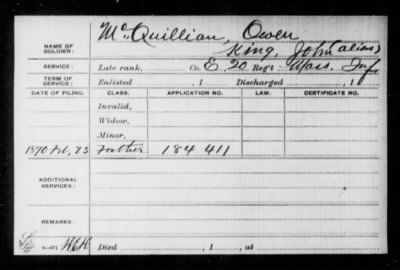 Mc Quillian, Owen
NAME OF SOLDIER: King, John (alias)
SERVICE: Late rank, Co. E 20 Regt. Mass. Inf.
TERM OF SERVICE: Enlisted , 1 Discharged , 1
DATE OF FILING. CLASS. APPLICATION NO. LAW. CERTIFICATE NO.
Invalid,
Widow,
Minor,
1870 Feb. 23 Father 184 411
ADDITIONAL SERVICES:
REMARKS:
Died , 1 , at